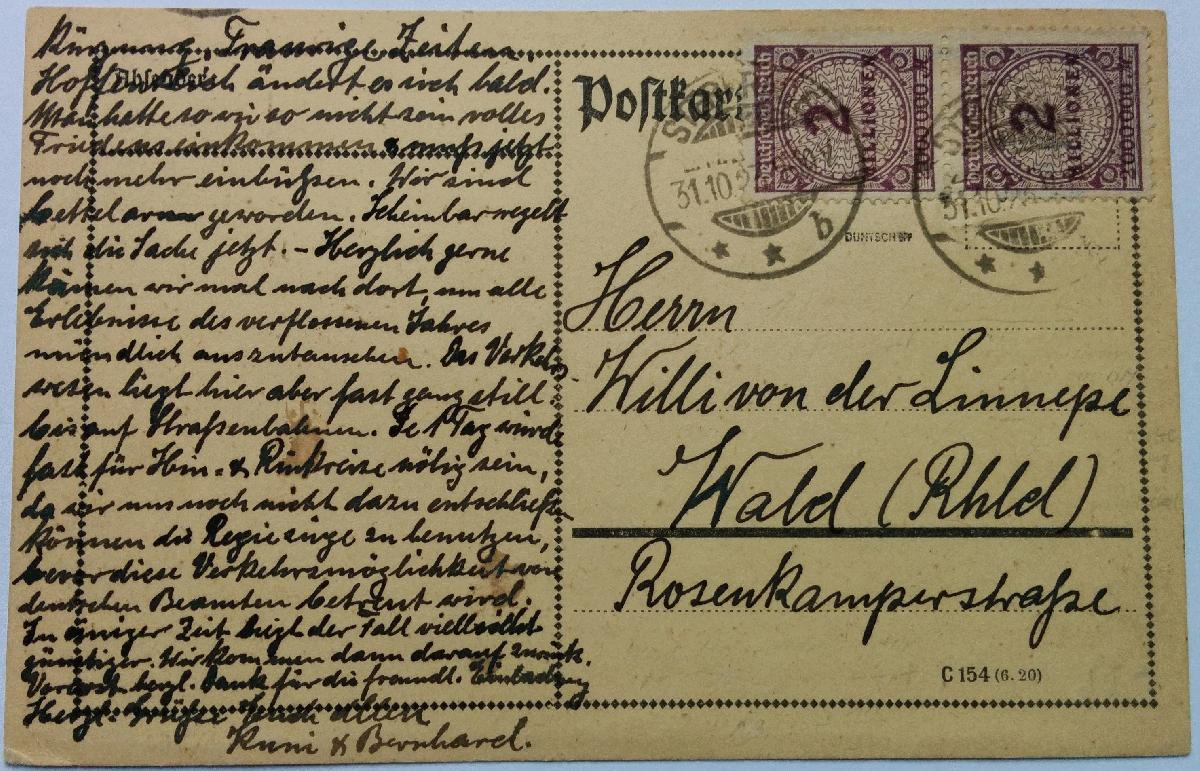 Kürzung. Traurige Zeiten.
Hoffentlich ändert es sich bald.
Man hatte sowieso nicht sein volles
Friedenseinkommen & muß jetzt
noch mehr einbüßen. Wir sind
bettelarm geworden. Scheinbar regelt
sich die Sache jetzt. – Herzlich gerne
kämen wir mal nach dort, um alle
Erlebnisse des verflossenen Jahres
mündlich auszutauschen. Das Verkehrs-
wesen liegt hier aber fast ganz still
bis auf Straßenbahnen. Je 1 Tag würde
fast für Hin- & Rückreise nötig sein,
da wir uns noch nicht dazu entschließen
können die Regiezüge zu benutzen,
bevor diese Verkehrsmöglichkeit von
deutschen Beamten betreut wird.
In einiger Zeit liegt der Fall vielleicht
günstiger. Wir kommen dann darauf zurück.
Vorerst herzl. Dank für die freundl. Einladung
Herzl. Grüße Euch allen
Kuni & Bernhard.
Postkar
Deutsches Reich 2 MILLIONEN 2000000 M
Deutsches Reich 2 MILLIONEN 2000000 M
31.10.2
b
31.10.2
Herrn
Willi von der Linnepe
Wald (Rhld)
Rosenkamperstraße
C 154 (6.20)